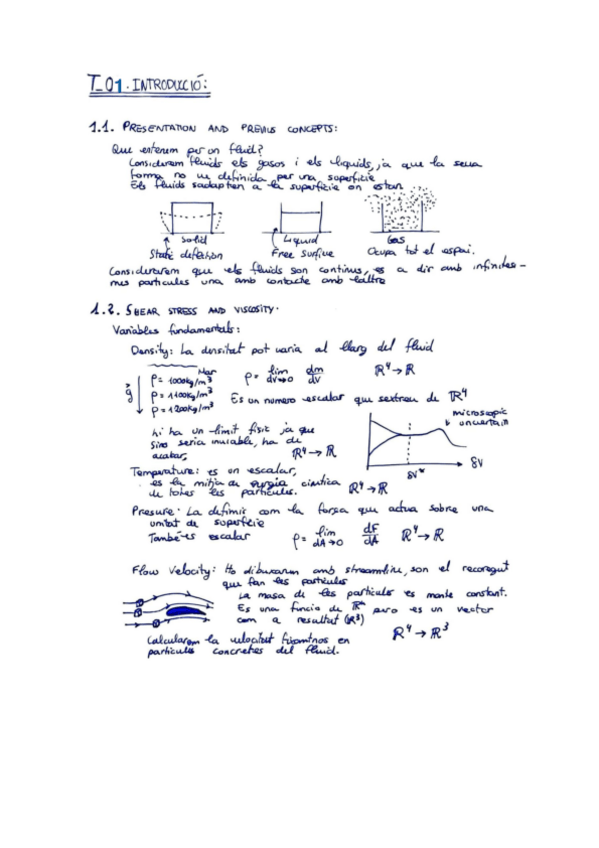 T_01. INTRODUCCIÓ:
1.1. PRESENTATION AND PREVIUS CONCEPTS:
Que entenem per un fluid?
Considerem fluids els gasos i els liquids, ja que la seua
forma no ve definida per una superficie
Els fluids sadapten a la superficie on estan
Solid Liquid Gas
Static Free Surface Ocupa tot el espai.
Considerarem que els fluids son continus, es a dir amb infinites-
mes particules una amb contacte amb laltre
1.2. SHEAR STRESS AND VISCOSITY.
Variables fundamentals:
Density: La densitat pot varia al llarg del fluid
Mar
g
ρ = 1000kg/m³
ρ = 1100kg/m³
ρ = 1200kg/m³
ρ = lim dV→0 dm/dV R⁴→R
Es un numero escalar que sextreu de R⁴
hi ha un limit fisic ja que
sino seria inviable, ha de
acabar, R⁴→R
microscopic
uncertain
δV* δV
Temperature: es un escalar,
es la mitja de energia cinetica
de totes les particules. R⁴→R
Presure: La definir com la força que actua sobre una
unitat de superficie
També es escalar p = lim dA→0 dF/dA R⁴→R
Flow Velocity: Ho dibuixarem amb streamline, son el recoregut
que fan les particules
La masa de les particules es mante constant.
Es una funcio de R⁴ pero es un vector
com a resultat (R³)
R⁴→R³
Calcularem la velocitat en
particules concretes del fluid.